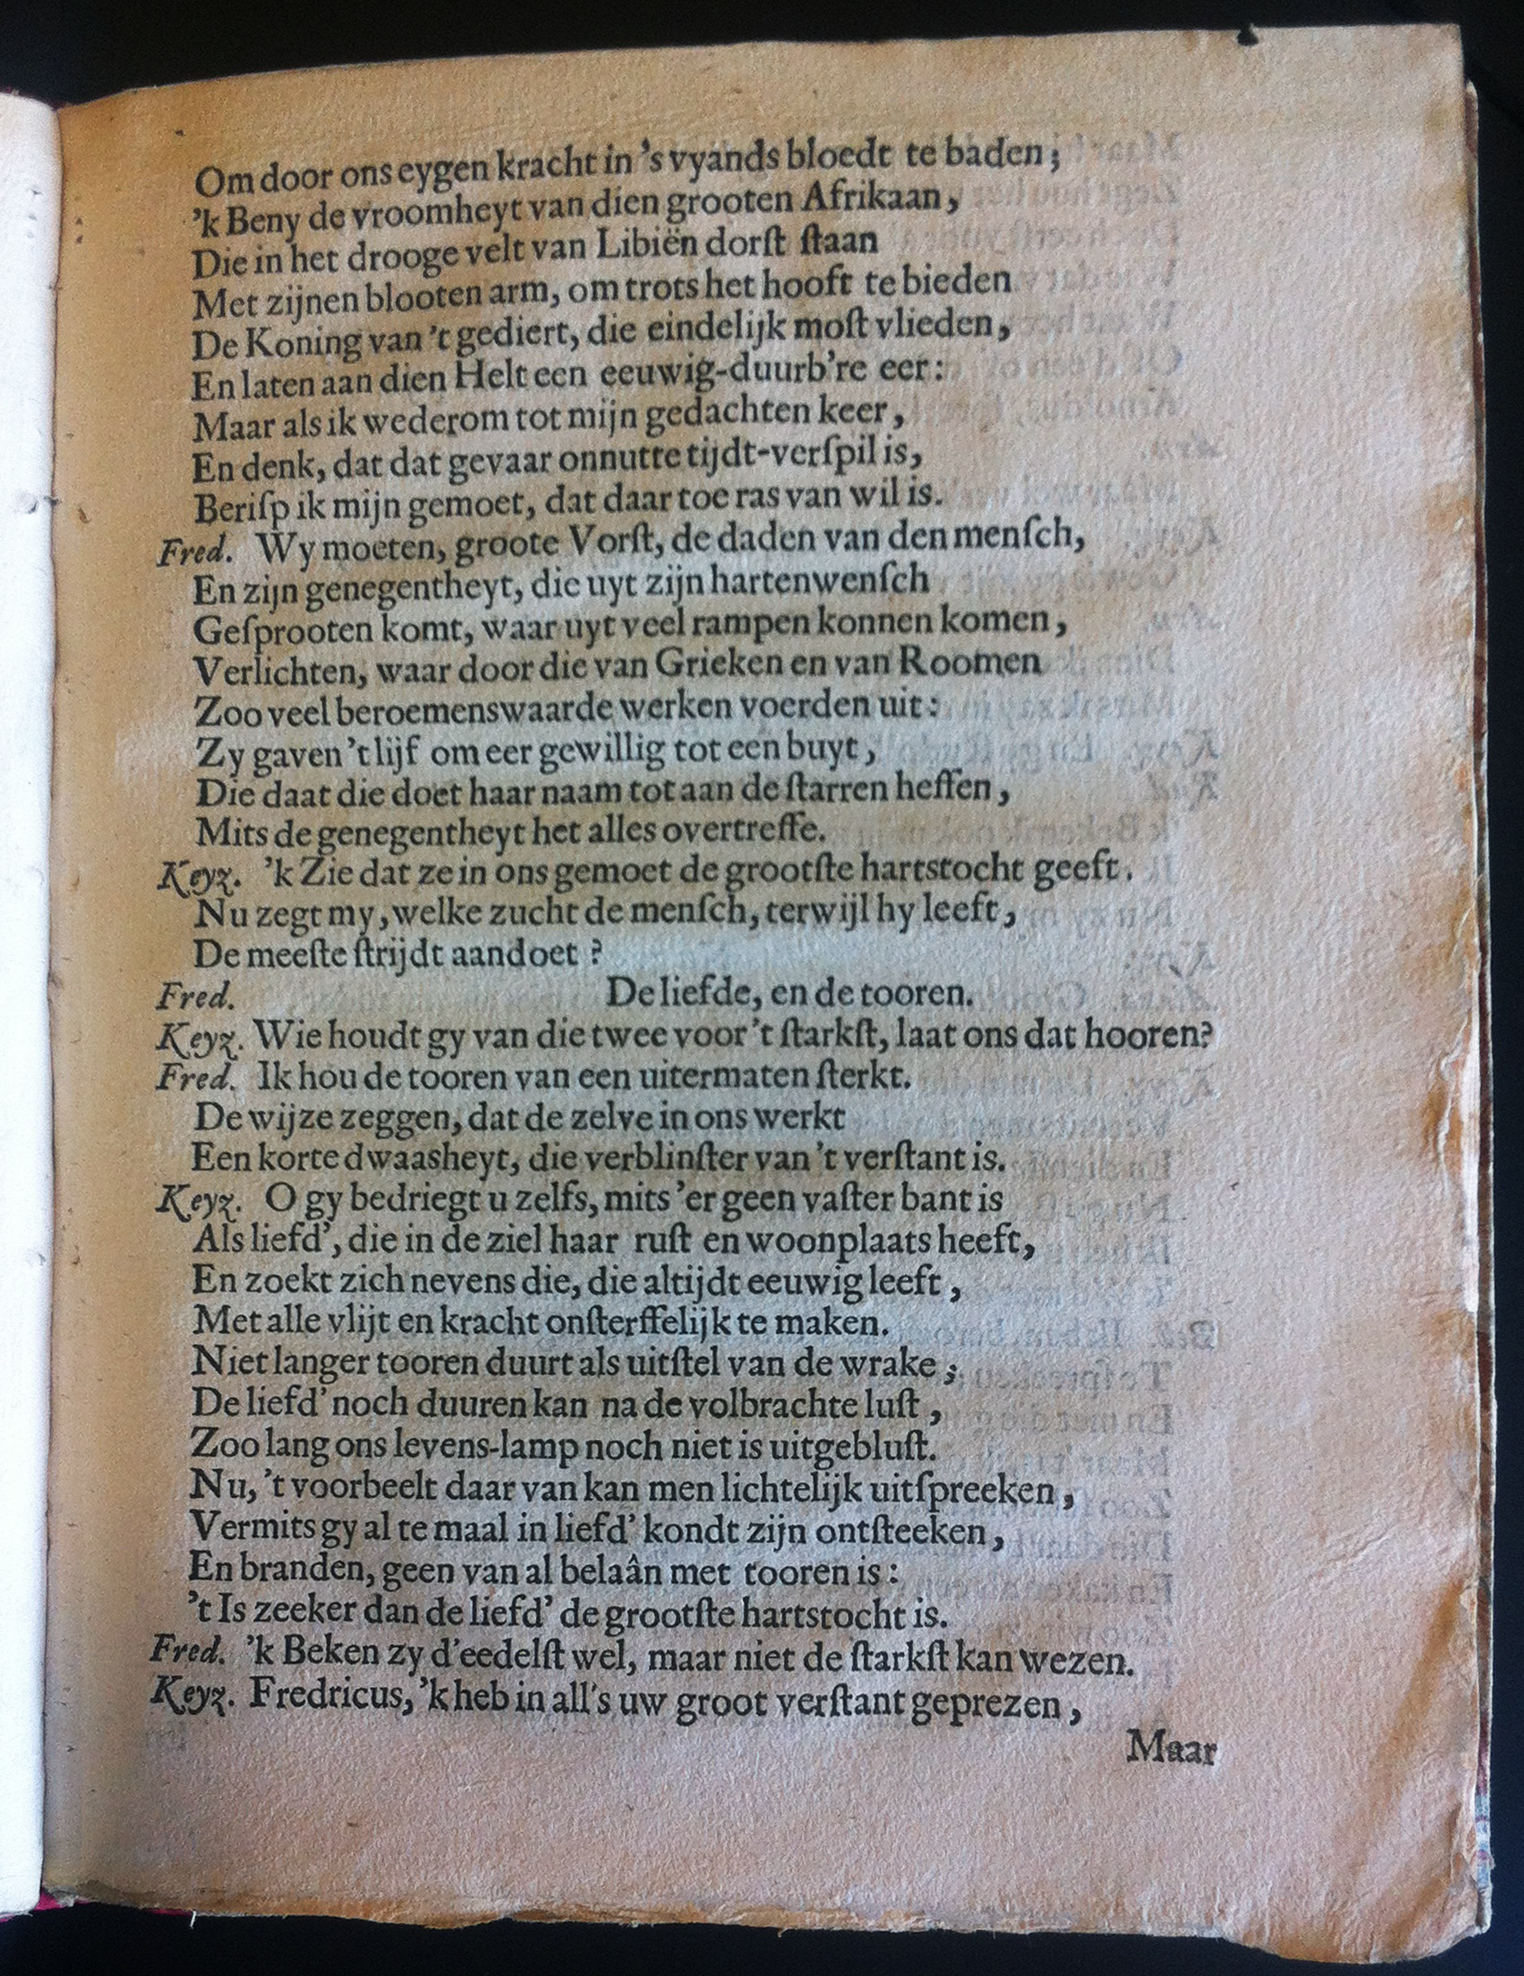 Om door ons eygen kracht in 's vyands bloedt te baden;
'k Beny de vroomheyt van dien grooten Afrikaan,
Die in het drooge velt van Libiën dorſt ſtaan
Met zijnen blooten arm, om trots het hooft te bieden
De Koning van 't gediert, die eindelijk moſt vlieden,
En laten aan dien Helt een eeuwig-duurb're eer:
Maar als ik wederom tot mijn gedachten keer,
En denk, dat dat gevaar onnutte tijdt-verſpil is,
Beriſp ik mijn gemoet, dat daar toe ras van wil is.
Fred. Wy moeten, groote Vorſt, de daden van den menſch,
En zijn genegentheyt, die uyt zijn hartenwenſch
Geſprooten komt, waar uyt veel rampen konnen komen,
Verlichten, waar door die van Grieken en van Roomen
Zoo veel beroemenswaarde werken voerden uit:
Zy gaven 't lijf om eer gewillig tot een buyt,
Die daat die doet haar naam tot aan de ſtarren heffen,
Mits de genegentheyt het alles overtreffe.
Keyz. 'k Zie dat ze in ons gemoet de grootſte hartstocht geeft.
Nu zegt my, welke zucht de menſch, terwijl hy leeft,
De meeſte ſtrijdt aandoet?
Fred. De liefde, en de tooren.
Keyz. Wie houdt gy van die twee voor 't ſtarkſt, laat ons dat hooren?
Fred. Ik hou de tooren van een uitermaten ſterkt.
De wijze zeggen, dat de zelve in ons werkt
Een korte dwaasheyt, die verblinſter van 't verſtant is.
Keyz. O gy bedriegt u zelfs, mits 'er geen vaſter bant is
Als liefd', die in de ziel haar ruſt en woonplaats heeft,
En zoekt zich nevens die, die altijdt eeuwig leeft,
Met alle vlijt en kracht onſterffelijk te maken.
Niet langer tooren duurt als uitſtel van de wrake;
De liefd' noch duuren kan na de volbrachte luſt,
Zoo lang ons levens-lamp noch niet is uitgebluſt.
Nu, 't voorbeelt daar van kan men lichtelijk uitſpreeken,
Vermits gy al te maal in liefd' kondt zijn ontſteeken,
En branden, geen van al belaân met tooren is:
't Is zeeker dan de liefd' de grootſte hartstocht is.
Fred. 'k Beken zy d'eedelſt wel, maar niet de ſtarkſt kan wezen.
Keyz. Fredricus, 'k heb in all's uw groot verſtant geprezen,
Maar